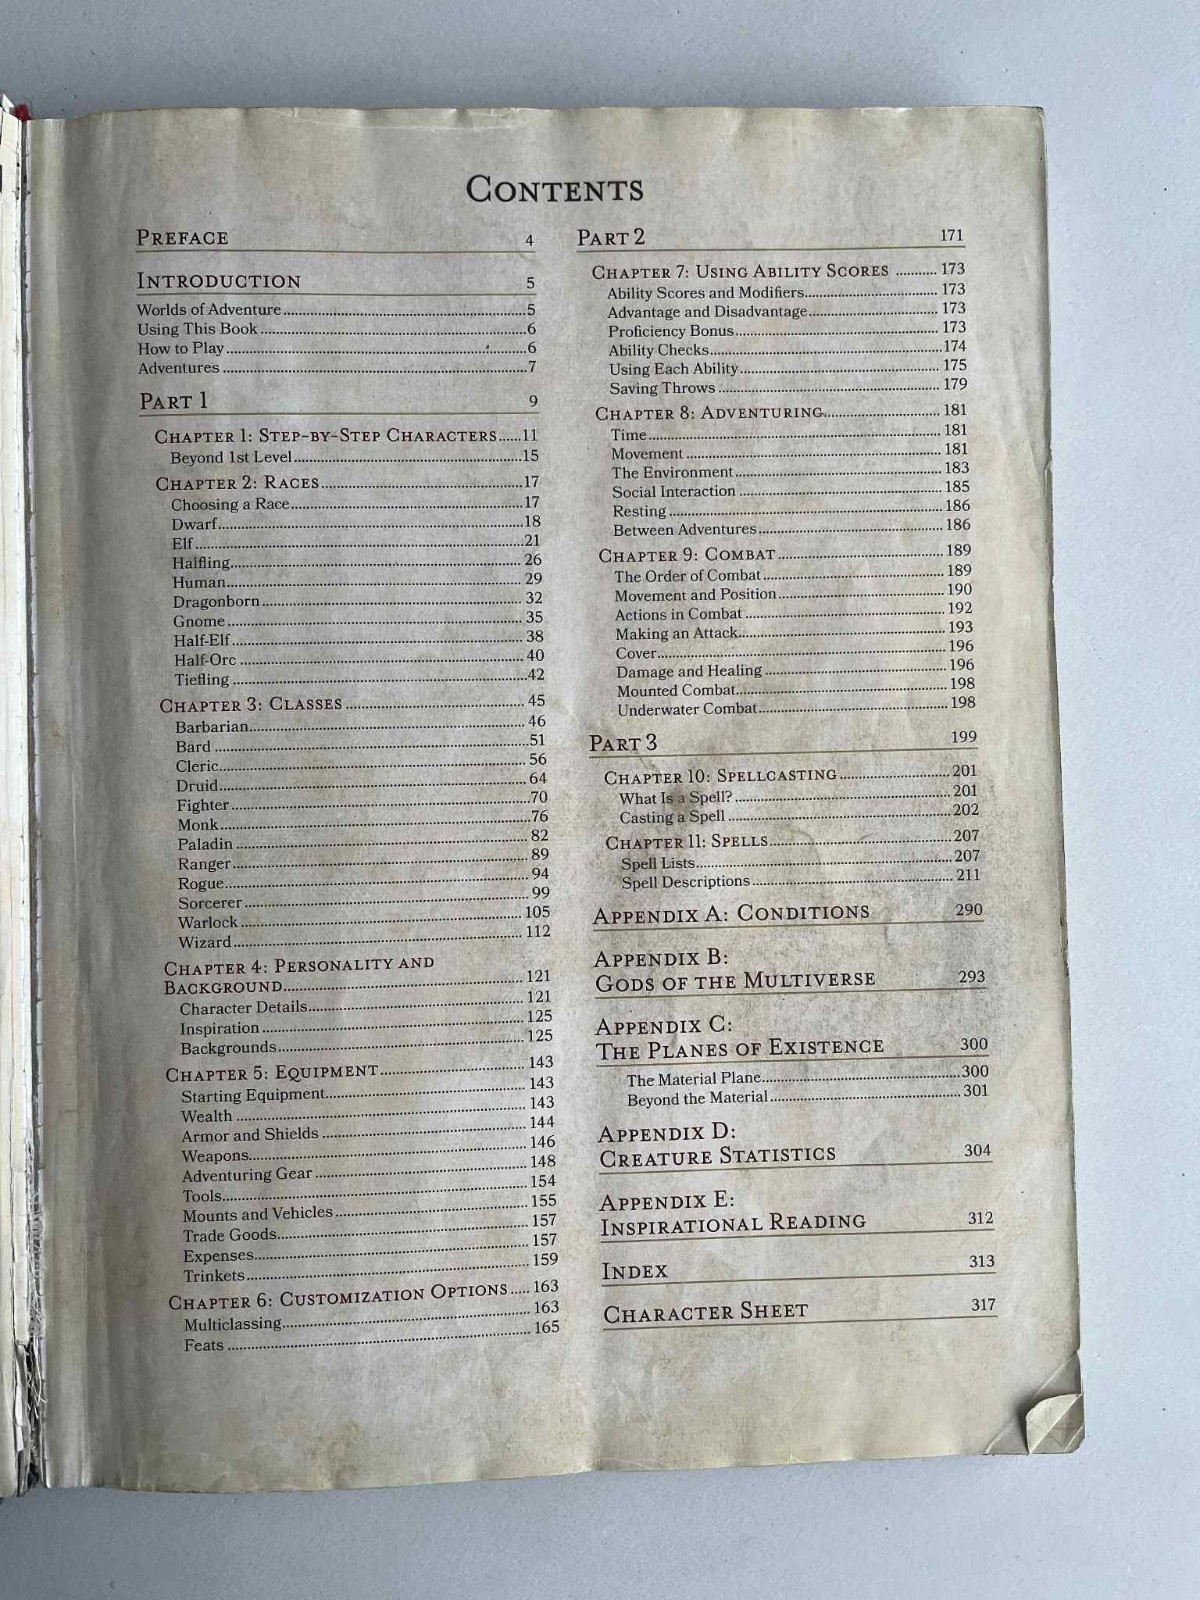 CONTENTS
PREFACE 4
INTRODUCTION 5
Worlds of Adventure 5
Using This Book 6
How to Play 6
Adventures 7
PART 1 9
CHAPTER 1: STEP-BY-STEP CHARACTERS 11
Beyond 1st Level 15
CHAPTER 2: RACES 17
Choosing a Race 17
Dwarf 18
Elf 21
Halfling 26
Human 29
Dragonborn 32
Gnome 35
Half-Elf 38
Half-Orc 40
Tiefling 42
CHAPTER 3: CLASSES 45
Barbarian 46
Bard 51
Cleric 56
Druid 64
Fighter 70
Monk 76
Paladin 82
Ranger 89
Rogue 94
Sorcerer 99
Warlock 105
Wizard 112
CHAPTER 4: PERSONALITY AND
BACKGROUND 121
Character Details 121
Inspiration 125
Backgrounds 125
CHAPTER 5: EQUIPMENT 143
Starting Equipment 143
Wealth 143
Armor and Shields 144
Weapons 146
Adventuring Gear 148
Tools 154
Mounts and Vehicles 155
Trade Goods 157
Expenses 157
Trinkets 159
CHAPTER 6: CUSTOMIZATION OPTIONS 163
Multiclassing 163
Feats 165
PART 2 171
CHAPTER 7: USING ABILITY SCORES 173
Ability Scores and Modifiers 173
Advantage and Disadvantage 173
Proficiency Bonus 173
Ability Checks 174
Using Each Ability 175
Saving Throws 179
CHAPTER 8: ADVENTURING 181
Time 181
Movement 181
The Environment 183
Social Interaction 185
Resting 186
Between Adventures 186
CHAPTER 9: COMBAT 189
The Order of Combat 189
Movement and Position 190
Actions in Combat 192
Making an Attack 193
Cover 196
Damage and Healing 196
Mounted Combat 198
Underwater Combat 198
PART 3 199
CHAPTER 10: SPELLCASTING 201
What Is a Spell? 201
Casting a Spell 202
CHAPTER 11: SPELLS 207
Spell Lists 207
Spell Descriptions 211
APPENDIX A: CONDITIONS 290
APPENDIX B:
GODS OF THE MULTIVERSE 293
APPENDIX C:
THE PLANES OF EXISTENCE 300
The Material Plane 300
Beyond the Material 301
APPENDIX D:
CREATURE STATISTICS 304
APPENDIX E:
INSPIRATIONAL READING 312
INDEX 313
CHARACTER SHEET 317